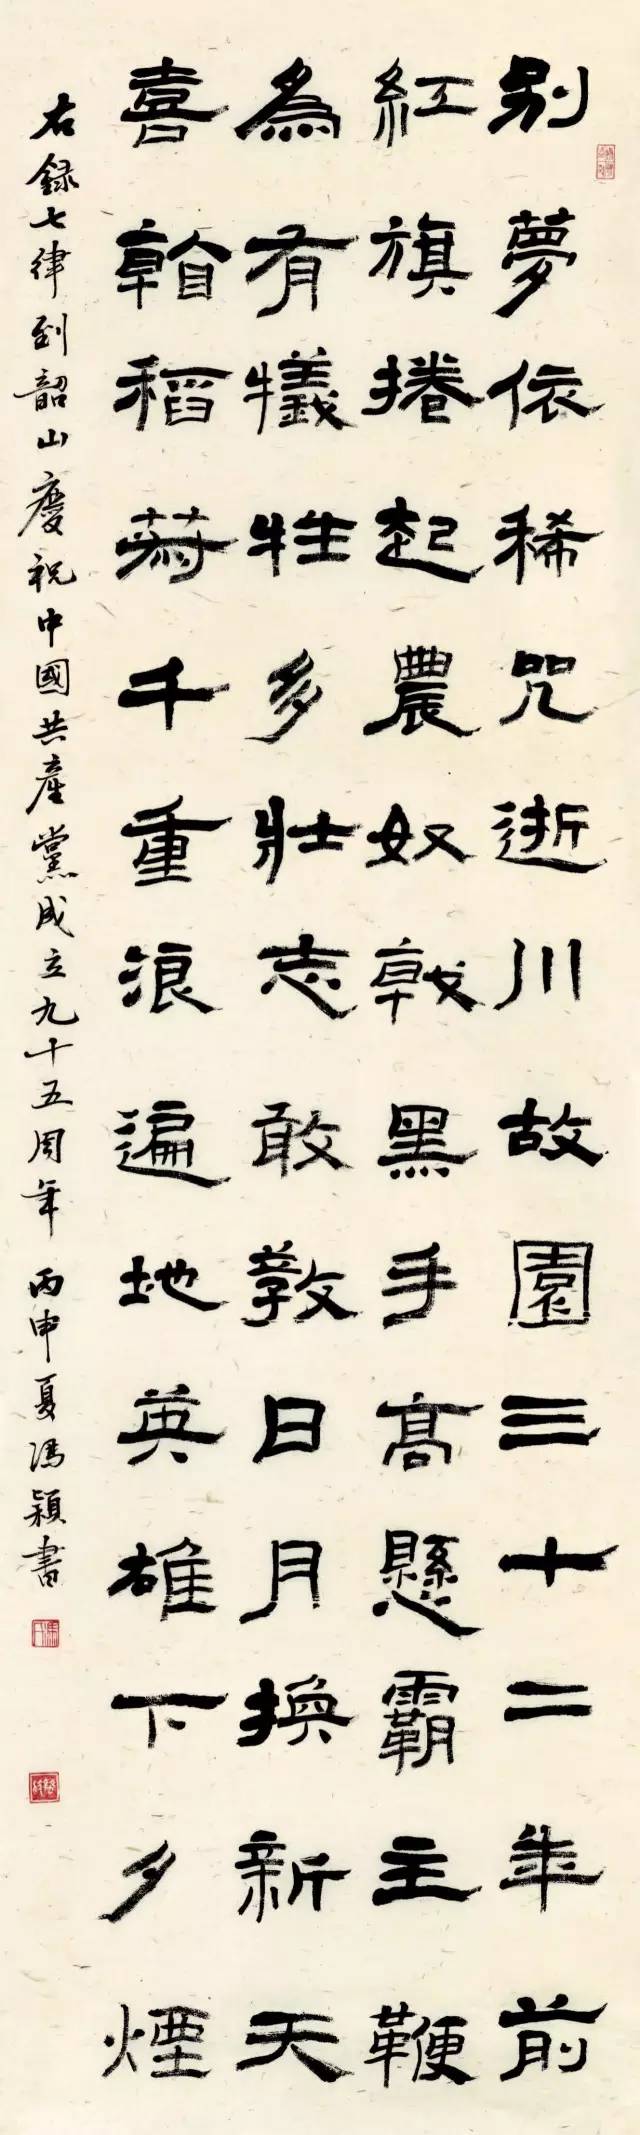 别夢依稀咒逝川故園三十二年前
紅旗捲起農奴戟黑手高懸霸主鞭
為有犧牲多壯志敢教日月換新天
喜看稻菽千重浪遍地英雄下夕煙
右錄七律到韶山慶祝中國共產黨成立九十五周年 丙申夏馮穎書